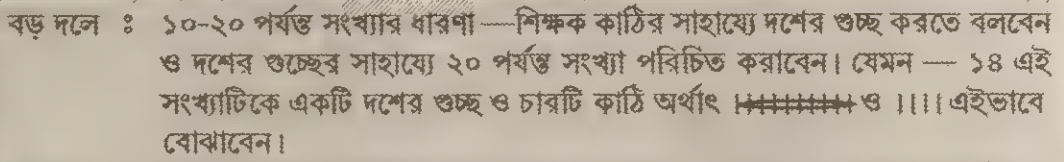 বড় দলে : ১০-২০ পর্যন্ত সংখ্যার ধারণা —শিক্ষক কাঠির সাহায্যে দশের গুচ্ছ করতে বলবেন
ও দশের গুচ্ছের সাহায্যে ২০ পর্যন্ত সংখ্যা পরিচিত করাবেন। যেমন — ১৪ এই
সংখ্যাটিকে একটি দশের গুচ্ছ ও চারটি কাঠি অর্থাৎ ।।।।।।।।।। ও ।।।। এইভাবে
বোঝাবেন।